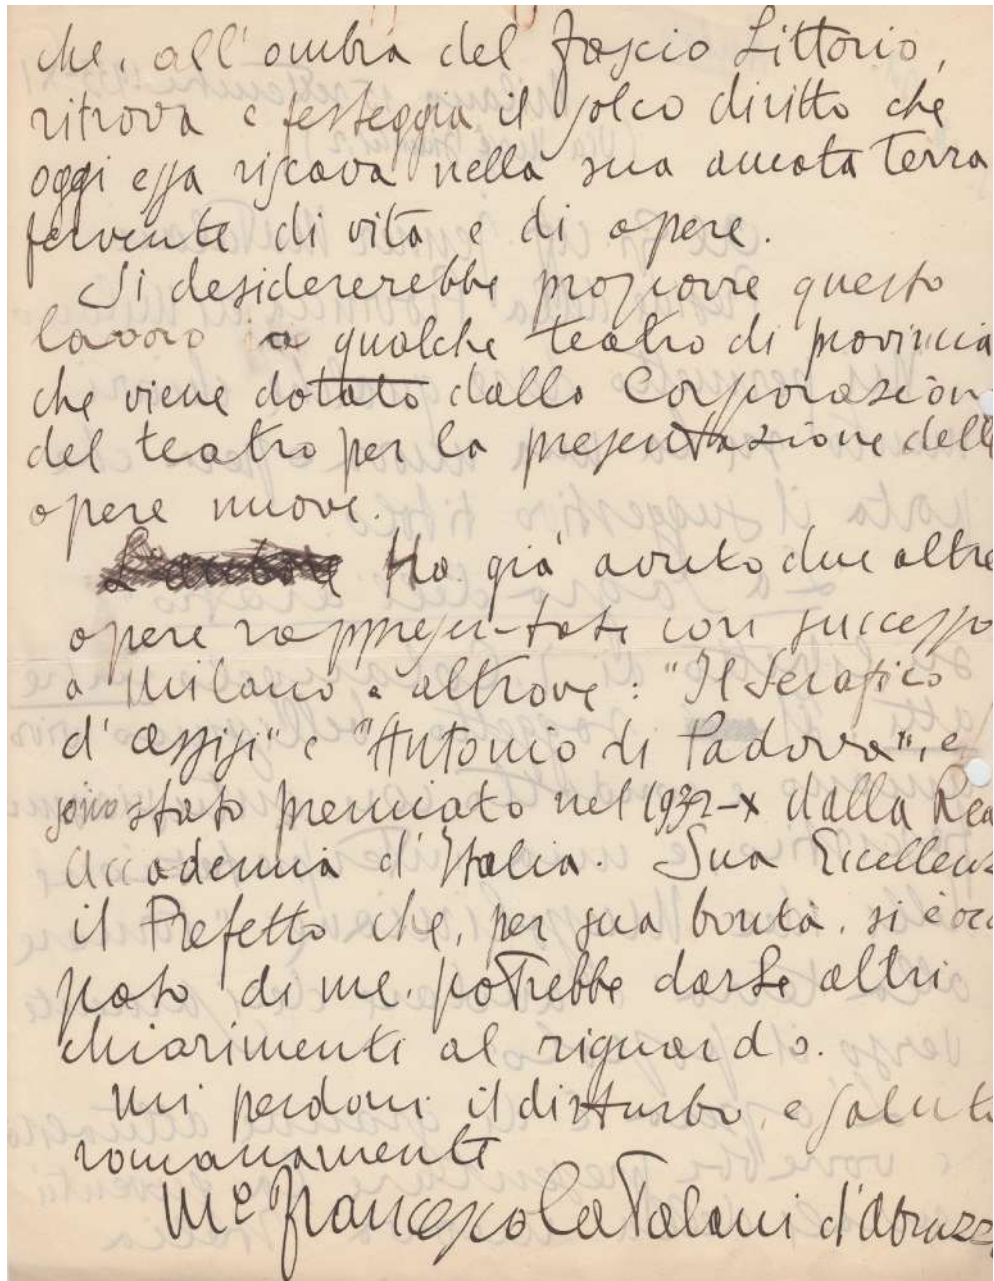 che, all'ombra del fascio Littorio,
ritrova e festeggia il solco diritto che
oggi essa riscava nella sua amata terra
fervente di vita e di opere.
Si desidererebbe proporre questo
lavoro a qualche teatro di provincia
che viene dotato dalla Corporazion
del teatro per la presentazione delle
opere nuove.
L'autore Ho già avuto due altre
opere rappresentate con successo
a Milano e altrove: "Il Serafico
d'Assisi" e "Antonio di Padova", e
sono stato premiato nel 1932-X dalla Rea
Accademia d'Italia. Sua Eccellenz
il Prefetto che, per sua bontà, si è occ
pato di me, potrebbe darle altri
chiarimenti al riguardo.
Mi perdoni il disturbo, e saluto
romanamente
Mº Francesco Catalani d'Abruzz